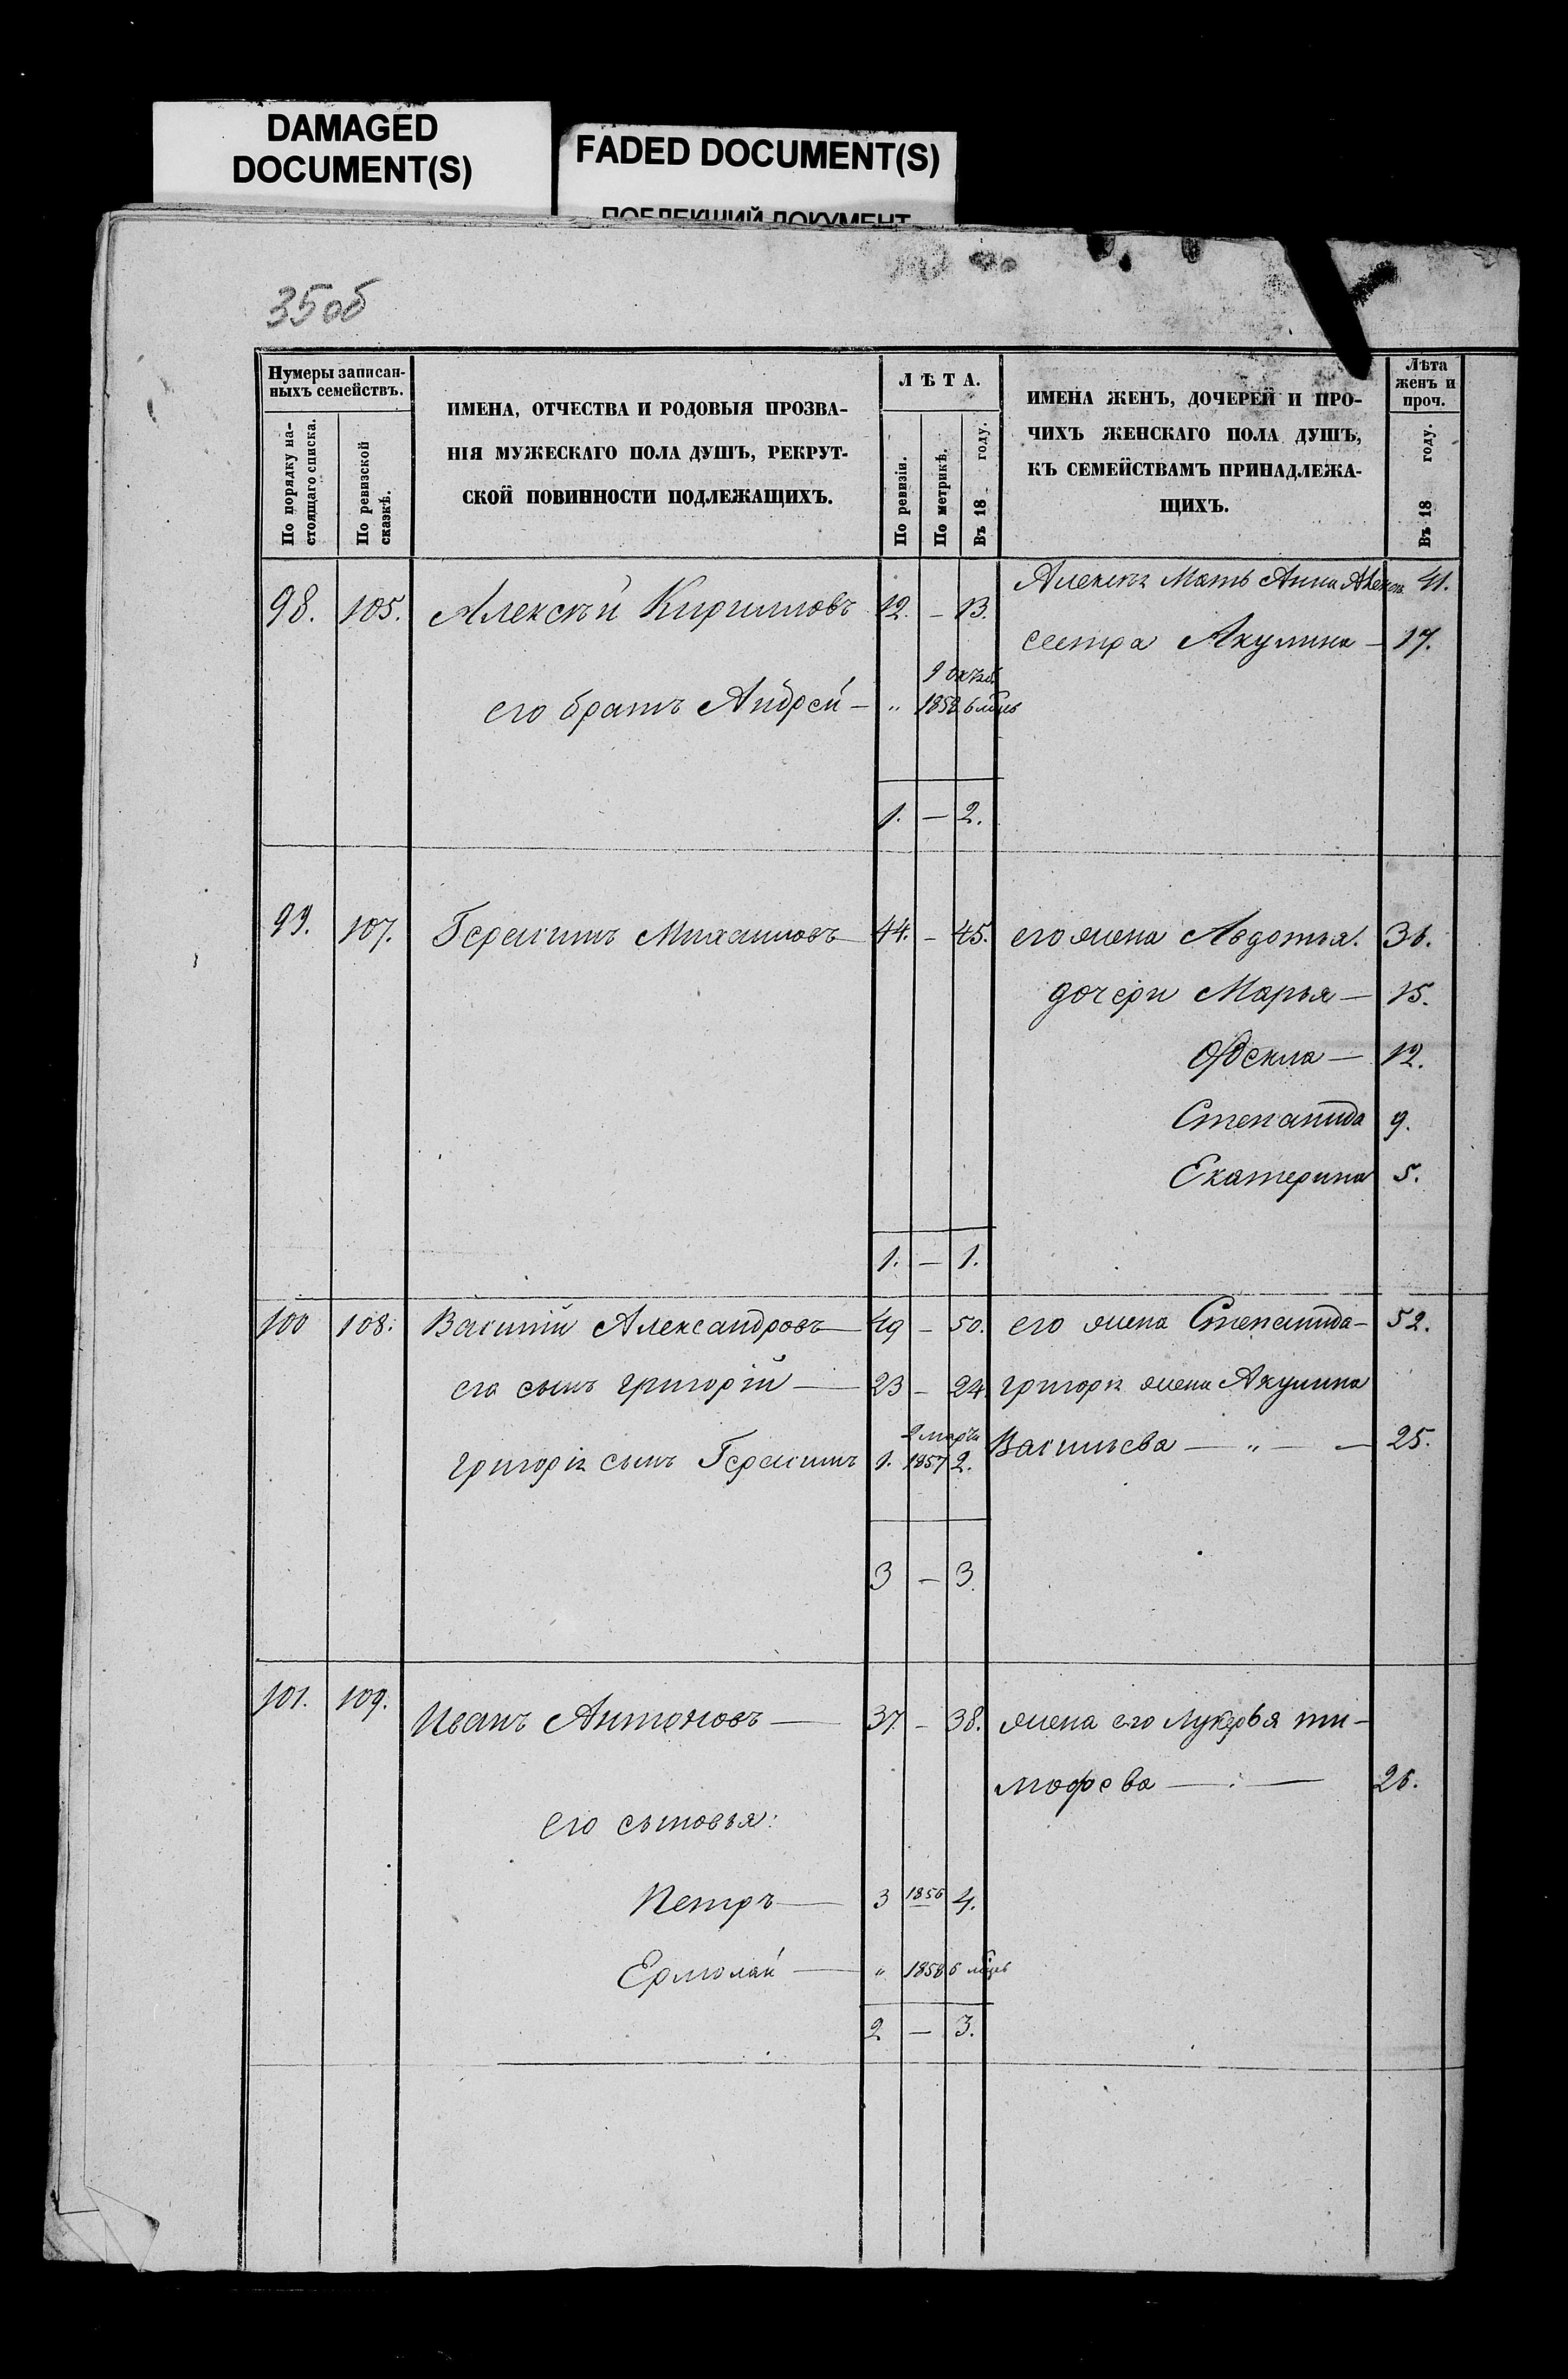 DAMAGED
DOCUMENT(S)
FADED DOCUMENT(S)
ПОБЛЕКШИЙ ДОКУМЕНТ
35об
Нумеры записан-
ныхъ семействъ.
По порядку на-
стоящаго списка.
По ревизской
сказкѣ.
ИМЕНА, ОТЧЕСТВА И РОДОВЫЯ ПРОЗВА-
НІЯ МУЖЕСКАГО ПОЛА ДУШЪ, РЕКРУТ-
СКОЙ ПОВИННОСТИ ПОДЛЕЖАЩИХЪ.
ЛѢТА.
По ревизіи.
По метрикѣ.
Въ 18 году.
ИМЕНА ЖЕНЪ, ДОЧЕРЕЙ И ПРО-
ЧИХЪ ЖЕНСКАГО ПОЛА ДУШЪ,
КЪ СЕМЕЙСТВАМЪ ПРИНАДЛЕЖА-
ЩИХЪ.
Лѣта
женъ и
проч.
Въ 18 году.
98. 105. Алексѣй Кириловъ 12. – 13. Мать Анна 41.
сестра Акулина – 17.
его братъ Андрей – „ 1858 6 мѣць
1. – 2.
99. 107. Герасимъ Михаиловъ 44. – 45. его жена Авдотья. 36.
дочери Марья – 15.
Фекла – 12.
Степанида 9.
Екатерина 5.
1. – 1.
100 108. Василій Александровъ 49 – 50. его жена Степанида – 52.
его сынъ григорій – 23 – 24. григорія жена Акулина
2 марта
григорія сынъ Герасимъ 1. 1857 2. Васильева – „ – – 25.
3 – 3.
101. 109. Иванъ Антоновъ – 37. – 38. жена его Лукерья ти-
мофева – : – 26.
его сыновья:
Петръ – 3 1856 4.
Ермолай – „ 1858 6 мѣць
2 – 3.